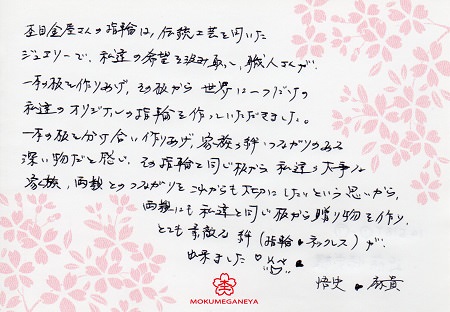 杢目金屋さんの指輪は、伝統工芸を用いた
ジュエリーで、私達の希望を汲み取って、職人さんが、
一本の板を作りあげ、その板から 世界に一つだけの
私達のオリジナルの指輪を作っていただきました。
一本の板を分け合い作りあげ、家族の絆・つながりのある
深い物だと感じ、その指輪と同じ板から 私達の大事な
家族、両親とのつながりをこれからも大切にしたいという思いから、
両親にも私達と同じ板から贈り物を作り、
とても素敵な絆(指輪・ネックレス)が、
出来ました♡
悟史 麻貴
MOKUMEGANEYA